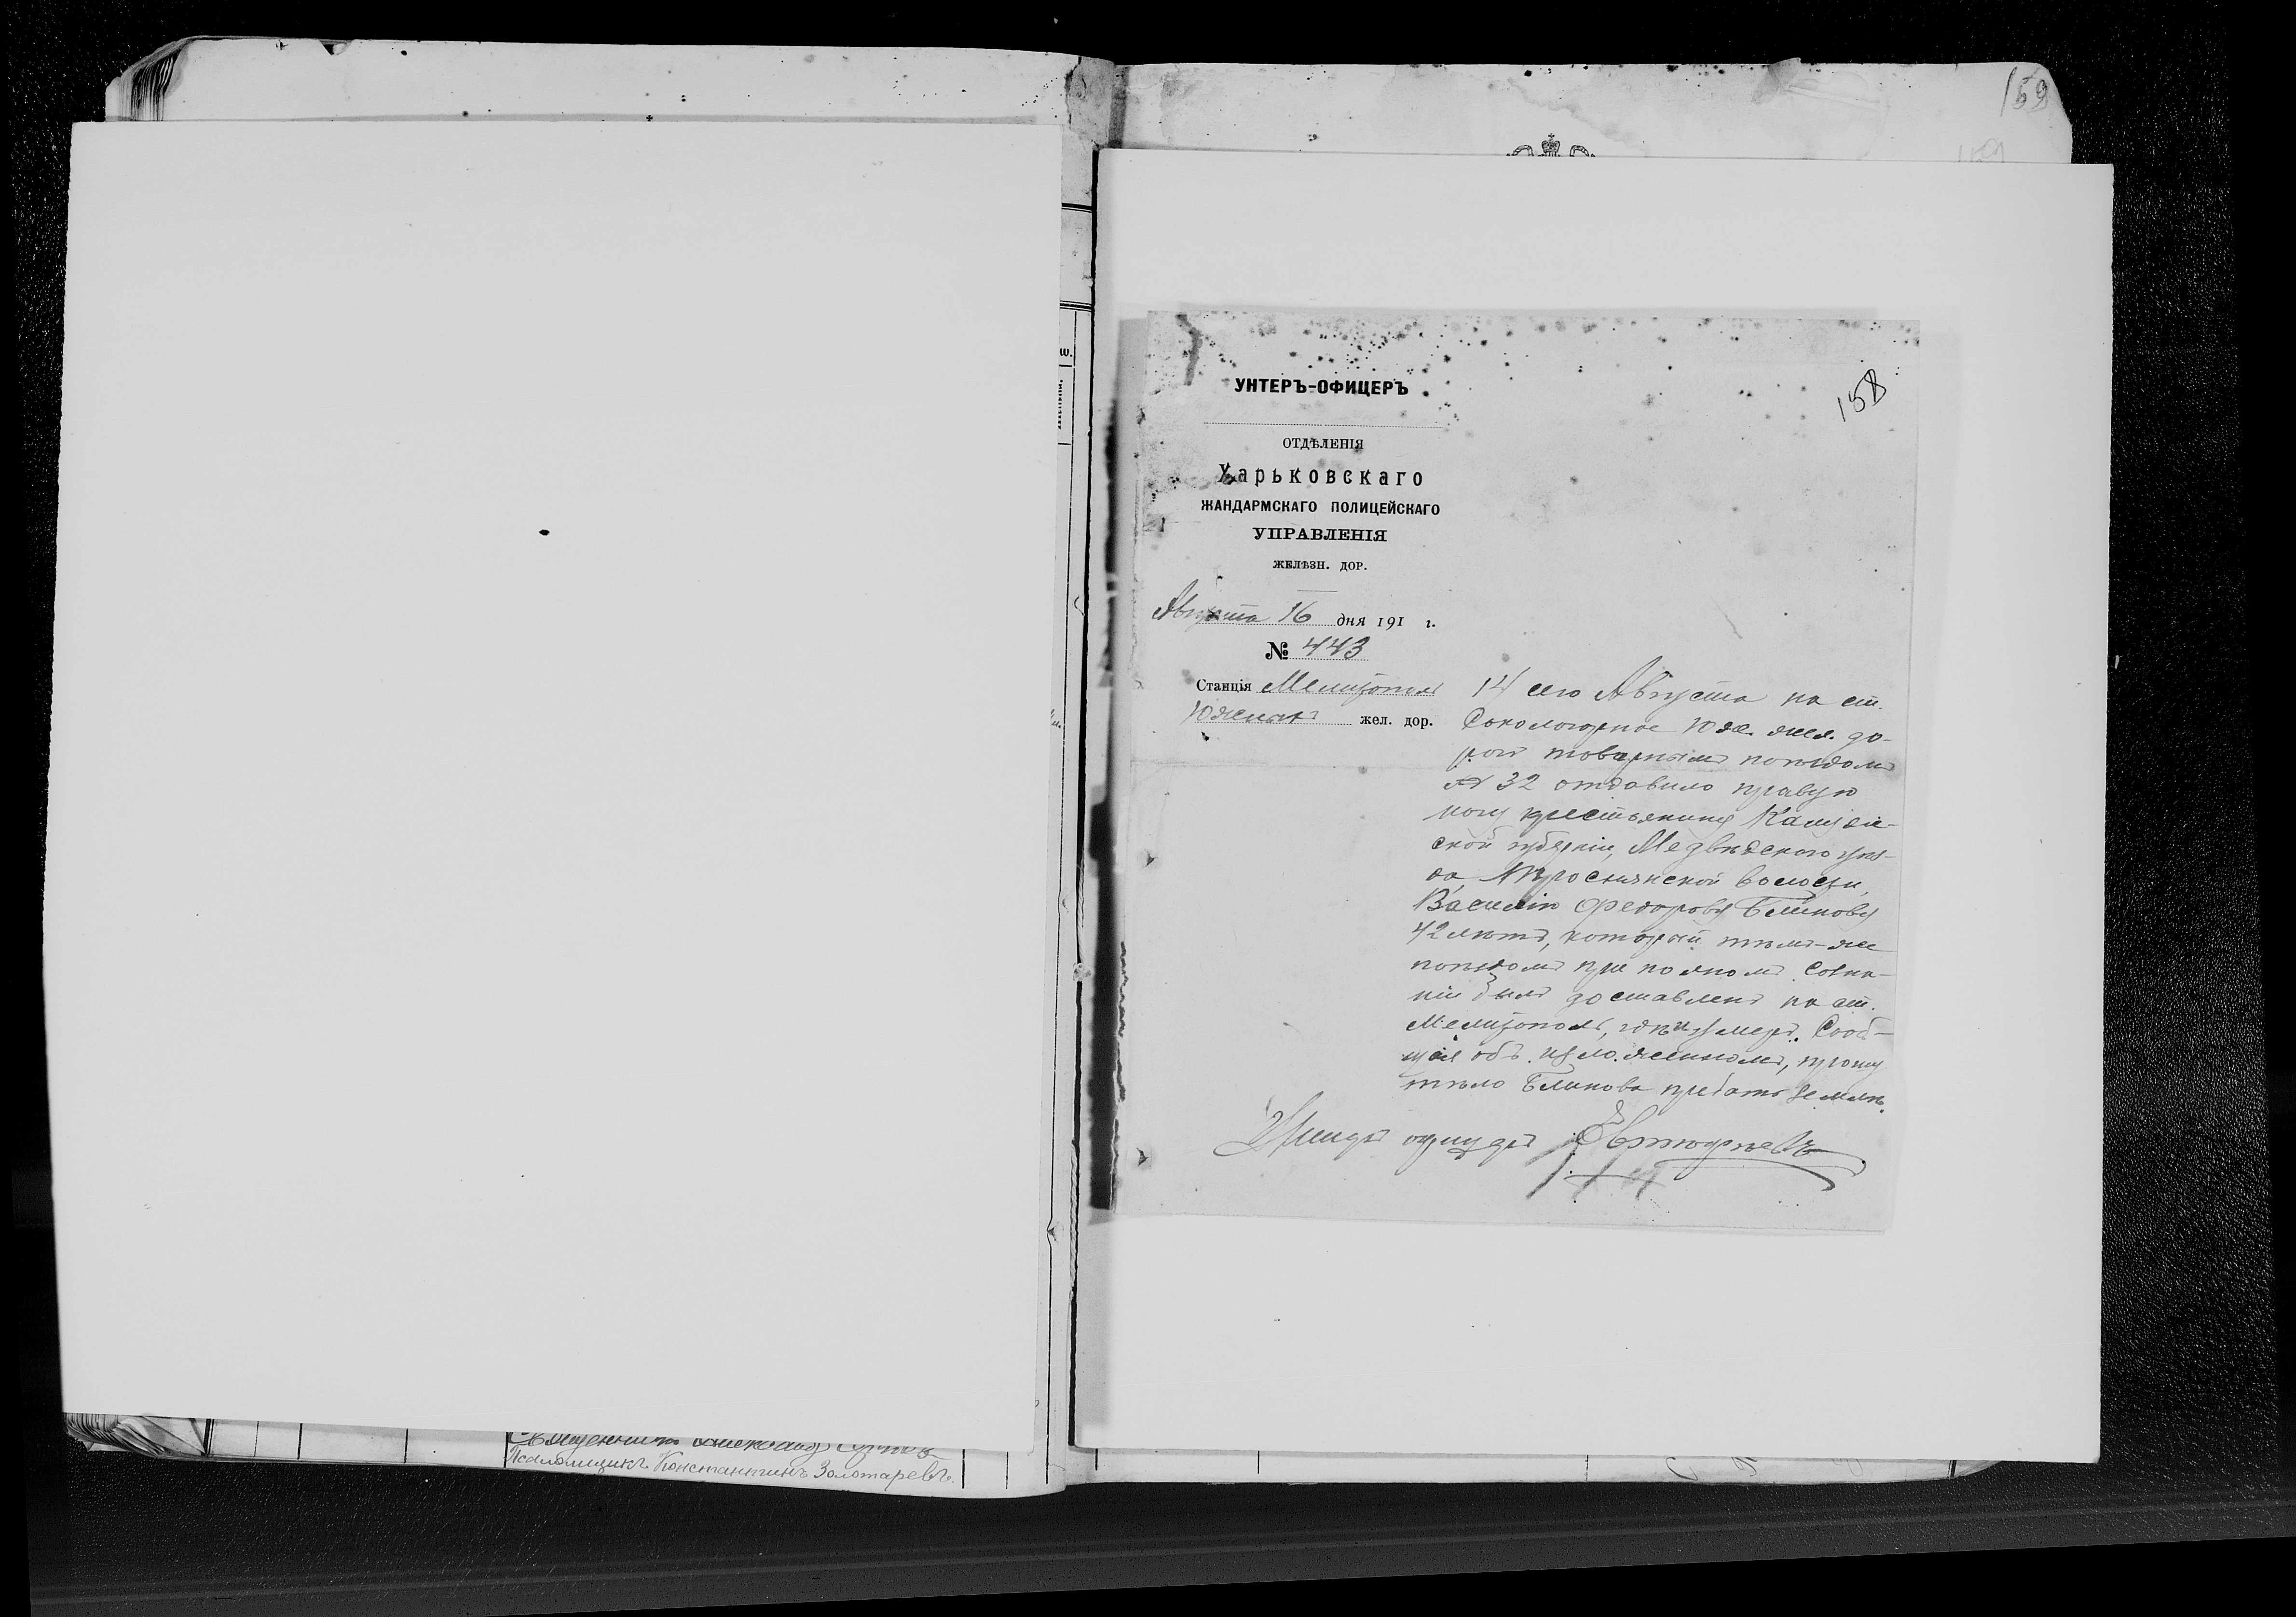 159
158
УНТЕРЪ-ОФИЦЕРЪ
ОТДѢЛЕНІЯ
Харьковскаго
ЖАНДАРМСКАГО ПОЛИЦЕЙСКАГО
УПРАВЛЕНІЯ
ЖЕЛѢЗН. ДОР.
Августа 16 дня 191 г.
№ 443
Станція Мелитополь
Южныхъ жел. дор.
14 сего Августа на ст.
Сокологорное Юж. жел. до-
рогъ товарнымъ поѣздомъ
№ 32 отдавило правую
ногу крестьянину Калуж-
ской губерніи, Медынскаго уѣз-
да, волости,
Василію Федорову Блинову
42 лѣтъ, который тѣмъ-же
поѣздомъ при полномъ созна-
ніи былъ доставленъ на ст.
Мелитополь, гдѣ и умеръ. Сооб-
щая объ изложенномъ, прошу
тѣло Блинова предать землѣ.
Унтеръ офицеръ
Священникъ Александръ
Псаломщикъ Константинъ Золотаревъ.